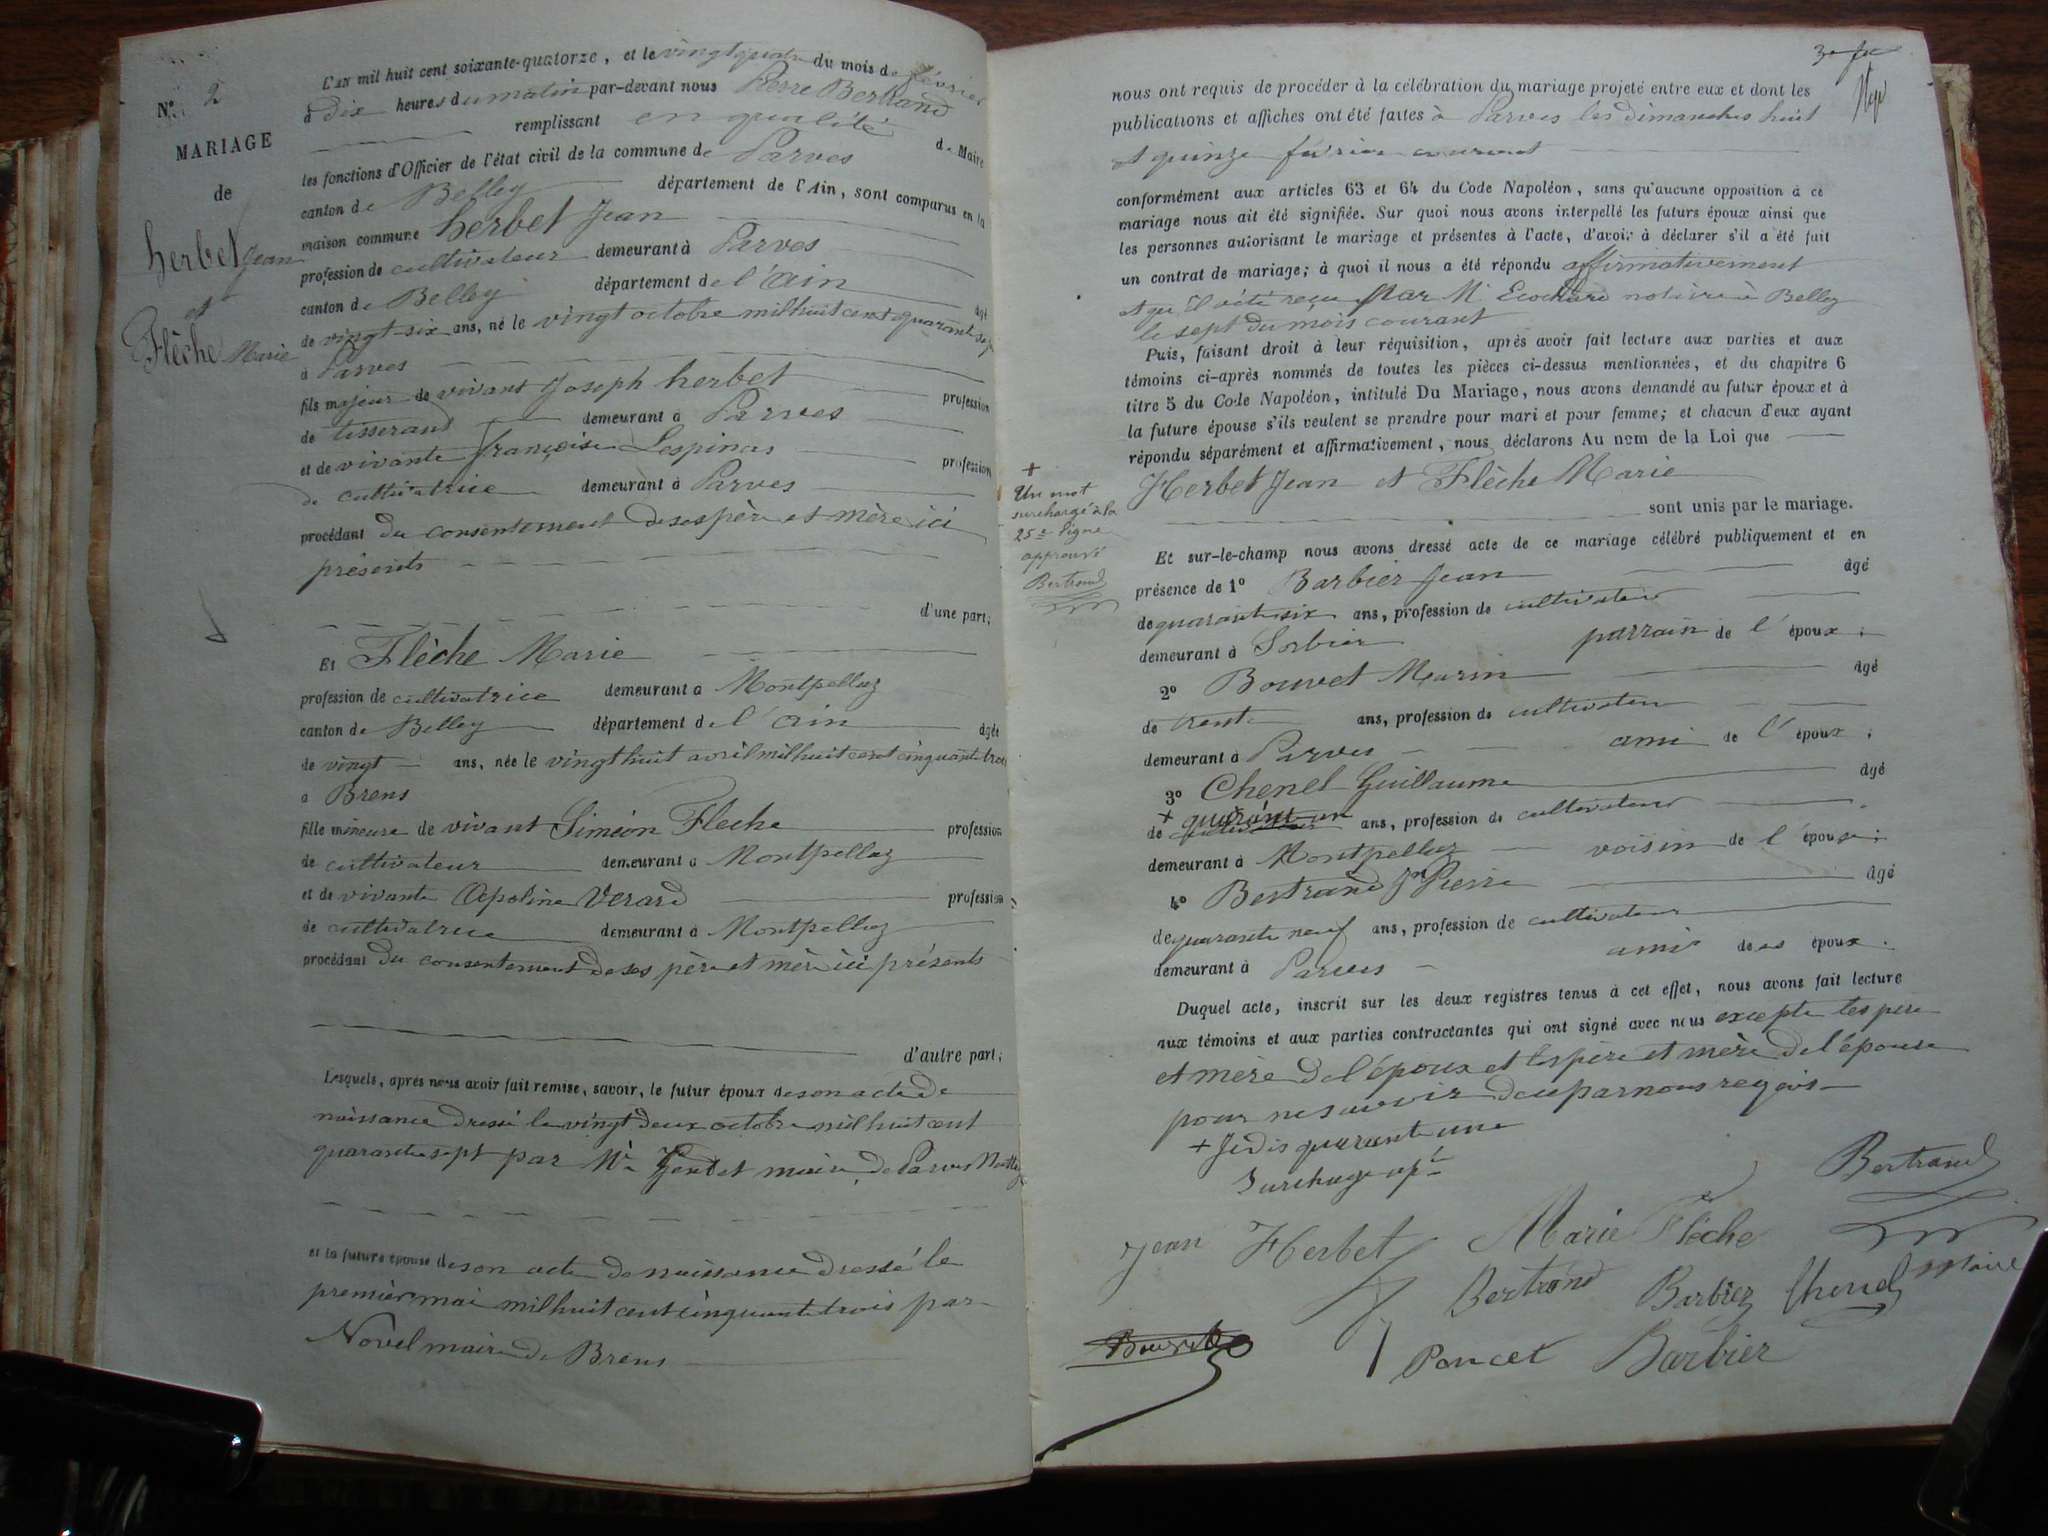 N° 2
MARIAGE
de
herbet Jean
et
Flèche Marie
L'an mil huit cent soixante-quatorze, et le vingt quatre du mois de février
à dix heures du matin par-devant nous Pierre Bertrand
remplissant en qualité de Maire
les fonctions d'Officier de l'état civil de la commune de Parves
canton de Belley département de l'Ain, sont comparus en la
maison commune herbet Jean
profession de cultivateur demeurant à Parves
canton de Belley département de l'ain agé
de vingt-six ans, né le vingt octobre mil huit cent quarante sept
à Parves
fils majeur de vivant Joseph herbet profession
de tisserand demeurant à Parves
et de vivante françoise Lespinas profession
de cultivatrice demeurant à Parves
procédant du consentement de ses père et mère ici
présents
d'une part;
Et Flèche Marie
profession de cultivatrice demeurant à Montpellaz
canton de Belley département de l'ain agée
de vingt ans, née le vingt huit avril mil huit cent cinquante trois
à Brens
fille mineure de vivant Siméon Fleche profession
de cultivateur demeurant à Montpellaz
et de vivante Apoline Verard profession
de cultivatrice demeurant à Montpellaz
procédant du consentement de ses père et mère ici présents
d'autre part;
Lesquels, après nous avoir fait remise, savoir, le futur époux de son acte de
naissance dressé le vingt deux octobre mil huit cent
quarante sept par Mr maire de Parves
et la future épouse de son acte de naissance dressé le
premier mai mil huit cent cinquante trois par
Novel maire de Brens
nous ont requis de procéder à la célébration du mariage projeté entre eux et dont les
publications et affiches ont été faites à Parves les dimanches huit
et quinze février courant
conformément aux articles 63 et 64 du Code Napoléon, sans qu'aucune opposition à ce
mariage nous ait été signifiée. Sur quoi nous avons interpellé les futurs époux ainsi que
les personnes autorisant le mariage et présentes à l'acte, d'avoir à déclarer s'il a été fait
un contrat de mariage; à quoi il nous a été répondu affirmativement
et qu'il a été reçu par Mr Ecochard notaire à Belley
le sept du mois courant
Puis, faisant droit à leur réquisition, après avoir fait lecture aux parties et aux
témoins ci-après nommés de toutes les pièces ci-dessus mentionnées, et du chapitre 6
titre 5 du Code Napoléon, intitulé Du Mariage, nous avons demandé au futur époux et à
la future épouse s'ils veulent se prendre pour mari et pour femme; et chacun d'eux ayant
répondu séparément et affirmativement, nous déclarons Au nom de la Loi que
Herbet Jean et Flèche Marie
sont unis par le mariage.
+
Un mot
surchargé à la
25e ligne
approuvé
Bertrand
Et sur-le-champ nous avons dressé acte de ce mariage célébré publiquement et en
présence de 1° Barbier Jean agé
de quarante six ans, profession de cultivateur
demeurant à Sorbier parrain de l'époux;
2° Bouvet Marin agé
de trente ans, profession de cultivateur
demeurant à Parves ami de l'époux;
3° Chenel Guillaume agé
+ quarante un
de ans, profession de cultivateur
demeurant à Montpellaz voisin de l'épouse;
4° Bertrand Jn Pierre agé
de quarante neuf ans, profession de cultivateur
demeurant à Parves ami des époux.
Duquel acte, inscrit sur les deux registres tenus à cet effet, nous avons fait lecture
aux témoins et aux parties contractantes qui ont signé avec nous excepté les père
et mère de l'époux et les père et mère de l'épouse
pour ne savoir de ce par nous requis
+ Je dis quarante une
Surchage apé
Bertrand
maire
Jean Herbet Marie Flèche
Bertrand Barbier Chenel
Bouvet
Poncet Barbier